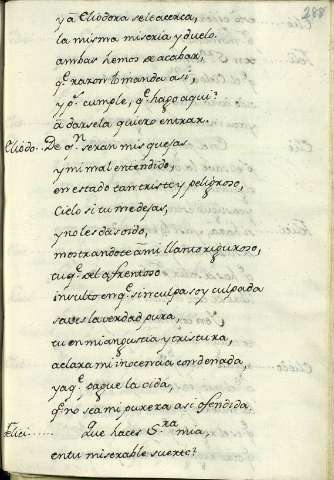 288
y a Eliodora se le acerca,
la misma miseria y duelo.
ambas hemos de acabar,
q.e razon lo manda asi,
y p.r cumple, q.e hago aqui?
a darsela quiero entrar.
Eliodo.. De q.n seran mis quejas
y mi mal entendido,
en estado tan triste y peligroso,
Cielo si tu me dejas,
y no les das oido,
mostrandote a mi llanto riguroso,
tu q.e del afrentoso
insulto en q.e sin culpa soy culpada
saves la verdad pura,
tu en mi angustia y tristura,
aclara mi inocencia condenada,
ya q.e pague la vida,
q.e no sea mi pureza asi ofendida.
Felici...... Que haces S.ra mia,
en tu miserable suerte?